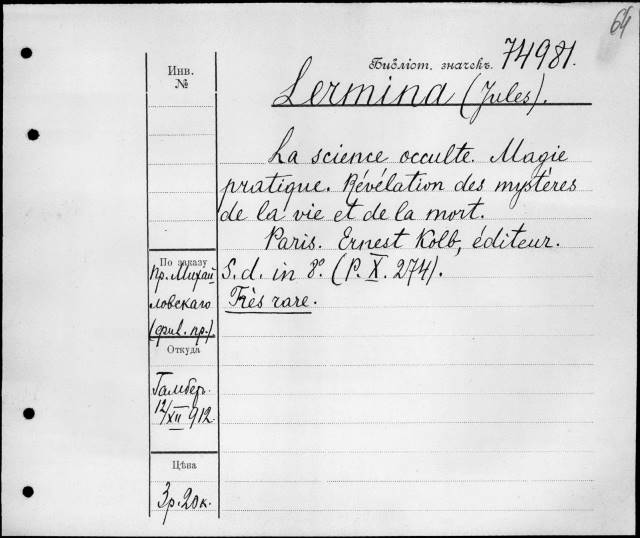 64
Библіот. значекъ. 74981.
Инв.
№
Lermina (Jules).
La science occulte. Magie
pratique. Révélation des mystères
de la vie et de la mort.
Paris. Ernest Kolb, éditeur.
S. d. in 8°. (P. X. 274).
Très rare.
По заказу
Пр. Михай
ловскаго
(фил. пр.).
Откуда
Гамбер.
12/XII 912.
Цѣна
3р. 20к.